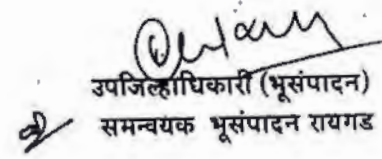 उपजिल्हाधिकारी (भूसंपादन)
समन्वयक भूसंपादन रायगड